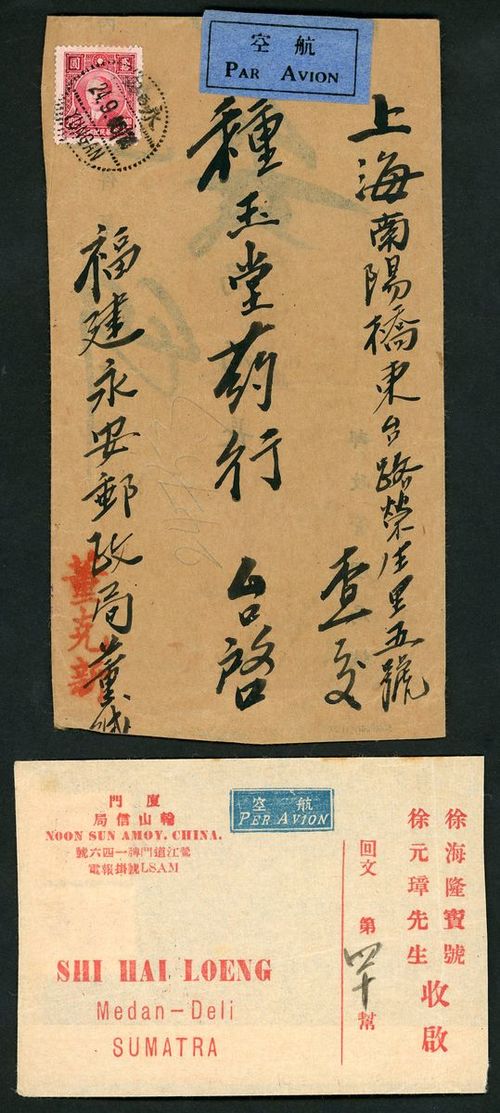 航空
PAR AVION
24.9
上海南陽橋東台路榮生里五號
查交
種玉堂药行 台啓
福建永安郵政局董緘
董克新
廈門
輪山信局
NOON SUN AMOY. CHINA.
鷺江道門牌一四六號
電報掛號LSAM
航空
PER AVION
徐海隆寶號
徐元璋先生
收啟
回文 第四十幫
SHI HAI LOENG
Medan-Deli
SUMATRA